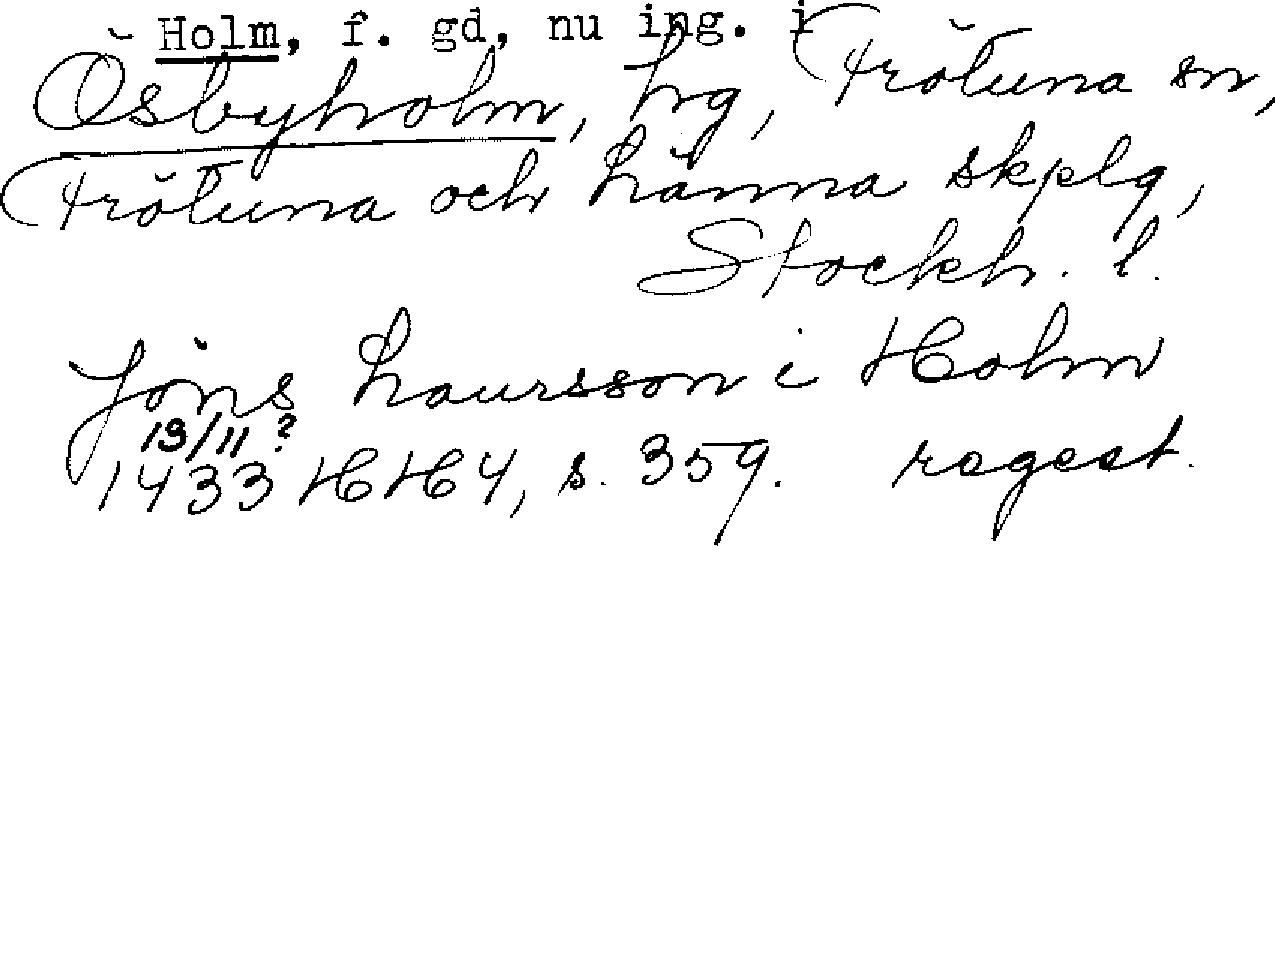 Holm, f. gd, nu ing. i
Ösbyholm, hg, Frötuna sn,
Frötuna och Länna skplg,
Stockh. l.
Jöns Laursson i Holm
13/11 ?
1433 HH 4, s. 359. regest.